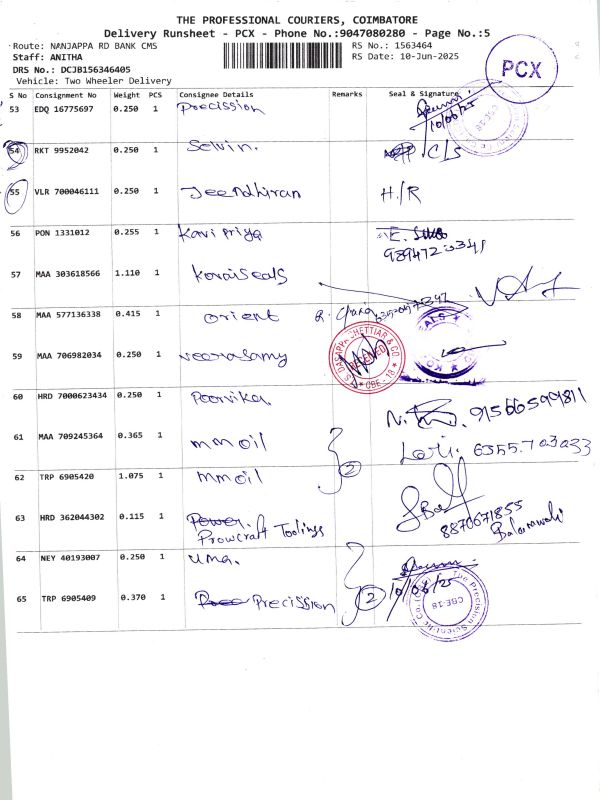 THE PROFESSIONAL COURIERS, COIMBATORE
Delivery Runsheet - PCX - Phone No.:9047080280 - Page No.:5
Route: NANJAPPA RD BANK CMS
Staff: ANITHA
DRS No.: DCJB156346405
Vehicle: Two Wheeler Delivery
RS No.: 1563464
RS Date: 10-Jun-2025
PCX
S No Consignment No Weight PCS Consignee Details Remarks Seal & Signature
53 EDQ 16775697 0.250 1 Precission 10/06/25
54 RKT 9952042 0.250 1 Selvin. C/S
55 VLR 700046111 0.250 1 Jeendhiran H/R
56 PON 1331012 0.255 1 Kavi Priya
57 MAA 303618566 1.110 1 Kovaiseals
58 MAA 577136338 0.415 1 Orient
59 MAA 706982034 0.250 1 Veerasamy
DASAPPA CHETTIAR & CO.
RECEIVED
CBE
60 HRD 7000623434 0.250 1 Poorvika. 9156659981
61 MAA 709245364 0.365 1 mm oil
62 TRP 6905420 1.075 1 mm oil 2
63 HRD 362044302 0.115 1 Prowcraft Toolings 8870671855
64 NEY 40193007 0.250 1 Uma.
65 TRP 6905409 0.370 1 Precission 2 10/06/25
The Precision Scientific Co.
CBE-18